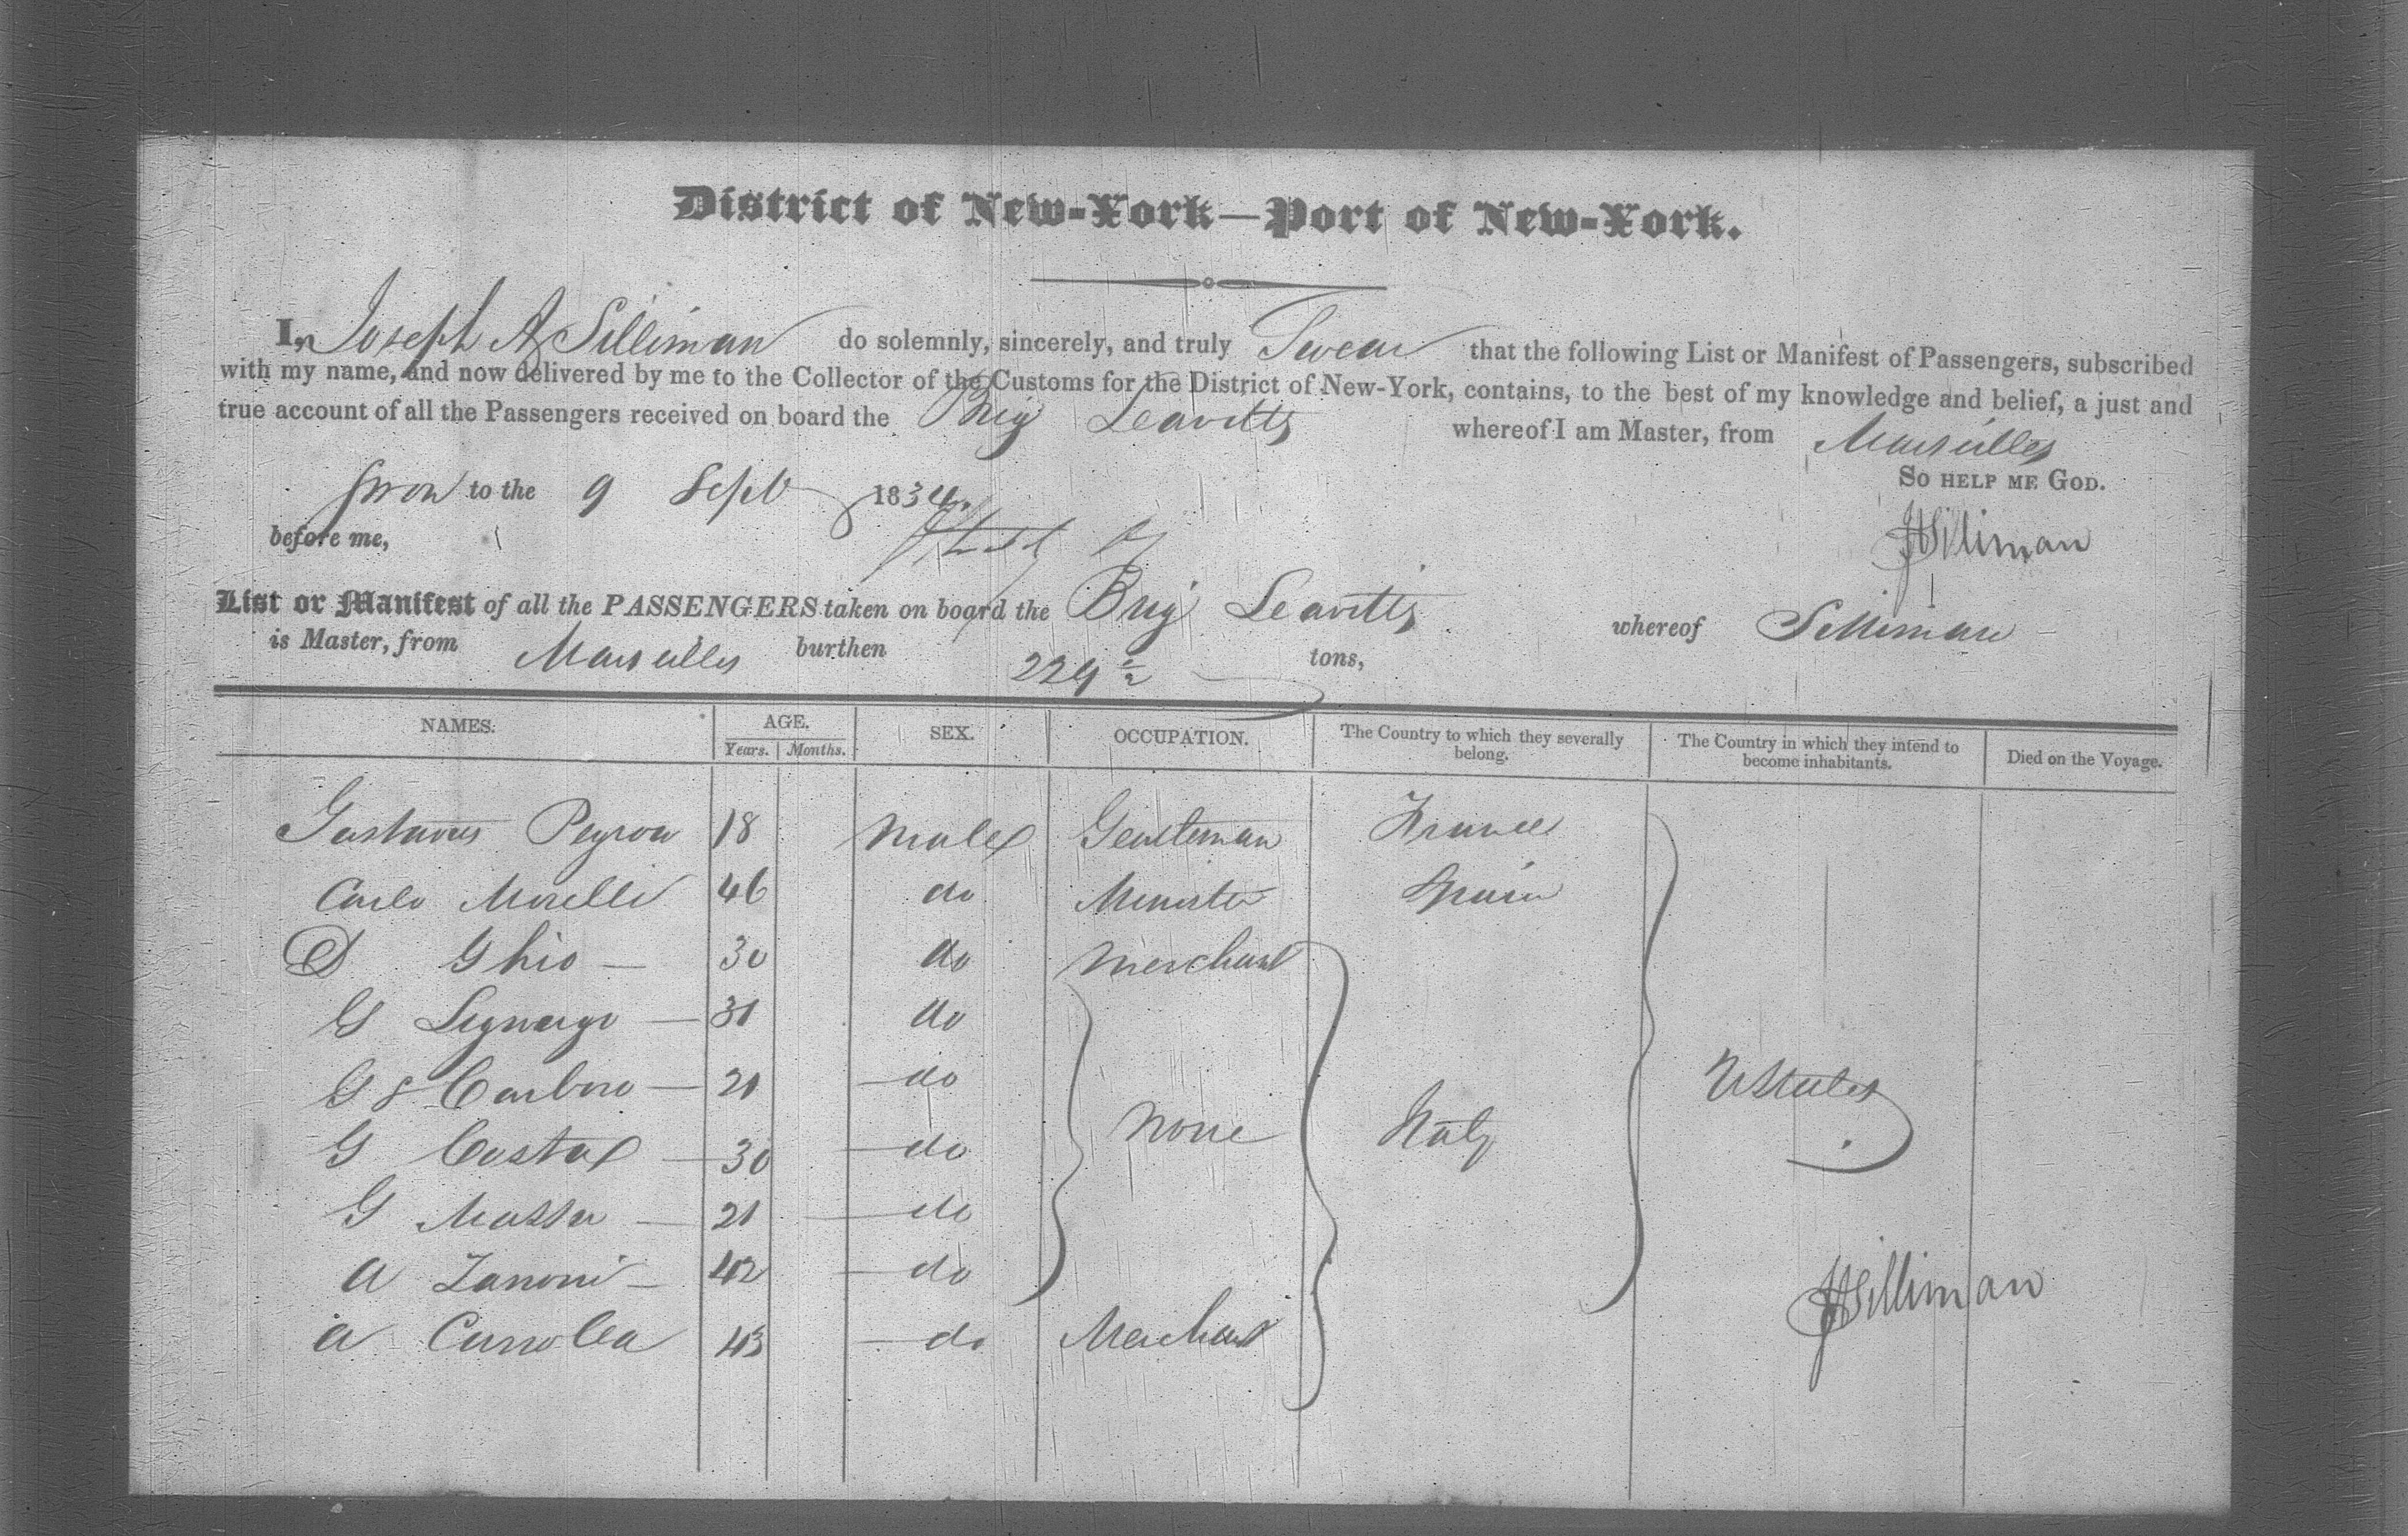 District of New-York—Port of New-York.
I, Joseph A Silliman do solemnly, sincerely, and truly Swear that the following List or Manifest of Passengers, subscribed
with my name, and now delivered by me to the Collector of the Customs for the District of New-York, contains, to the best of my knowledge and belief, a just and
true account of all the Passengers received on board the Brig Leavitts whereof I am Master, from Marseilles
So help me God.
Sworn to the 9 Sept 1834.
before me,
JASilliman
List or Manifest of all the PASSENGERS taken on board the Brig Leavitts whereof Silliman
is Master, from Marseilles burthen tons,
NAMES. AGE. SEX. OCCUPATION. The Country to which they severally belong. The Country in which they intend to become inhabitants. Died on the Voyage.
Years. Months.
Gustavus Peyron 18 Male Gentleman France
Carlo Morelli 46 do Minister Spain
Ghio — 30 do Merchant
G 31 do
G Carbone — 21 do
G Costa — 30 do None Italy UStates
G Massa — 21 do
A Zanoni — 42 do
A 43 do Merchant
JASilliman